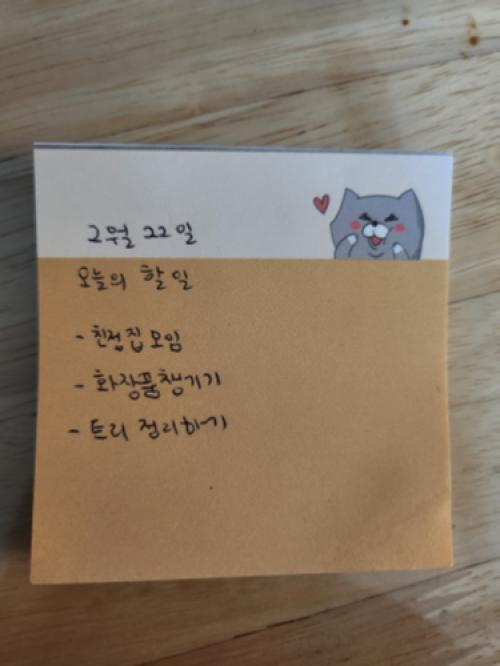 2월 22일
오늘의 할일
- 친정집 모임
- 화장품챙기기
- 트리 정리하기